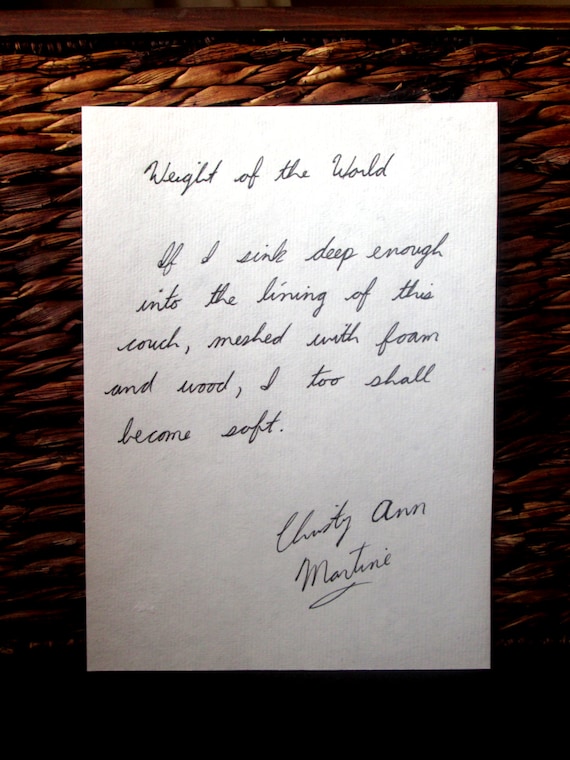 Weight of the World
If I sink deep enough
into the lining of this
couch, meshed with foam
and wood, I too shall
become soft.
Christy Ann
Martine